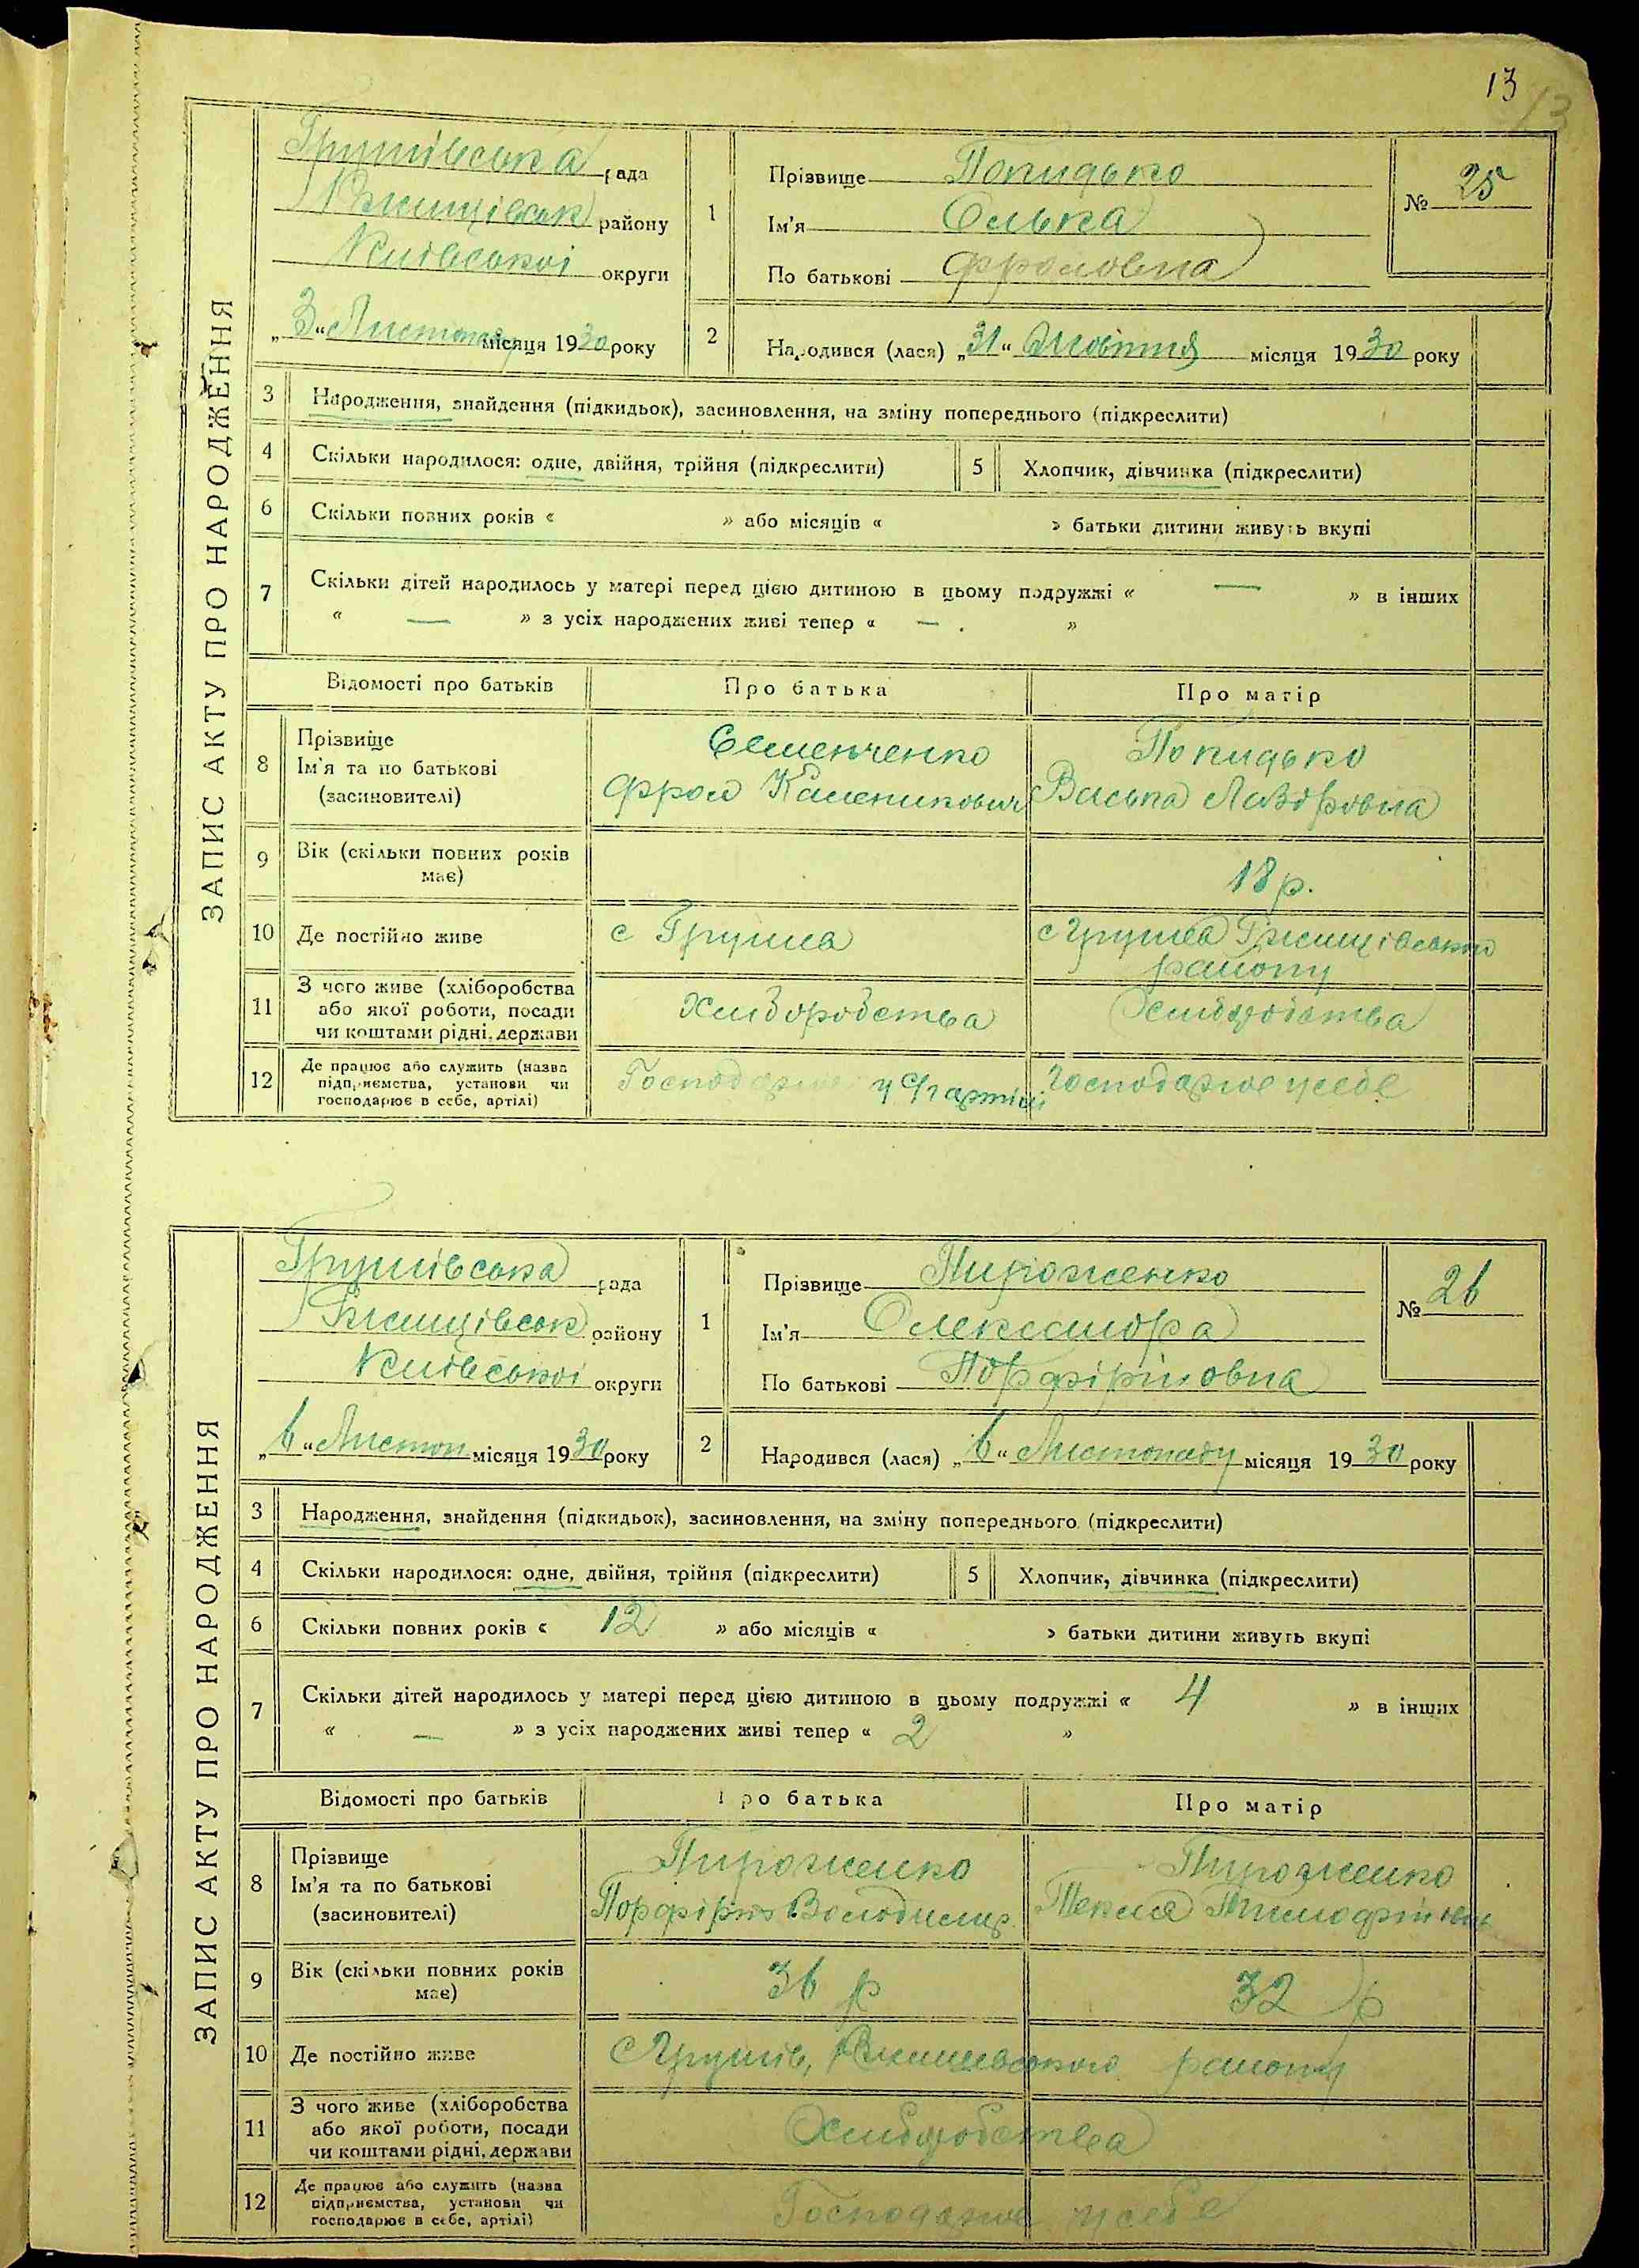 13
13
ЗАПИС АКТУ ПРО НАРОДЖЕННЯ
Грушівська рада
Ржищівськ району
Київської округи
„3“ Листопад місяця 1930 року
1 Прізвище Покидько
Ім'я Олька
По батькові Фроловна
№ 25
2 Народився (лася) „31“ Жовтня місяця 1930 року
3 Народження, знайдення (підкидьок), засиновлення, на зміну попереднього (підкреслити)
4 Скільки народилося: одне, двійня, трійня (підкреслити) 5 Хлопчик, дівчинка (підкреслити)
6 Скільки повних років « » або місяців « » батьки дитини живуть вкупі
7 Скільки дітей народилось у матері перед цією дитиною в цьому подружжі « — » в інших
« — » з усіх народжених живі тепер « — »
Відомості про батьків Про батька Про матір
8 Прізвище Семенченко Покидько
Ім'я та по батькові Фрол Каленикович Васька Лазоровна
(засиновителі)
9 Вік (скільки повних років має) 18 р.
10 Де постійно живе с Грушів с Грушів Ржищівського
району
11 З чого живе (хліборобства Хліборобства Хліборобства
або якої роботи, посади
чи коштами рідні, держави
12 Де працює або служить (назва Господарює у с/г артілі Господарює у себе
підприємства, установи чи
господарює в себе, артілі)
ЗАПИС АКТУ ПРО НАРОДЖЕННЯ
Грушівська рада
Ржищівськ району
Київської округи
„6“ Листоп місяця 1930 року
1 Прізвище Пироженко
Ім'я Олександра
По батькові Порфіріновна
№ 26
2 Народився (лася) „6“ Листопаду місяця 1930 року
3 Народження, знайдення (підкидьок), засиновлення, на зміну попереднього (підкреслити)
4 Скільки народилося: одне, двійня, трійня (підкреслити) 5 Хлопчик, дівчинка (підкреслити)
6 Скільки повних років « 12 » або місяців « » батьки дитини живуть вкупі
7 Скільки дітей народилось у матері перед цією дитиною в цьому подружжі « 4 » в інших
« — » з усіх народжених живі тепер « 2 »
Відомості про батьків Про батька Про матір
8 Прізвище Пироженко Пироженко
Ім'я та по батькові Порфірій Володимир. Текля
(засиновителі)
9 Вік (скільки повних років має) 36 р 32 р
10 Де постійно живе с Грушів, Ржищівського району
11 З чого живе (хліборобства Хліборобства
або якої роботи, посади
чи коштами рідні, держави
12 Де працює або служить (назва Господарює у себе
підприємства, установи чи
господарює в себе, артілі)